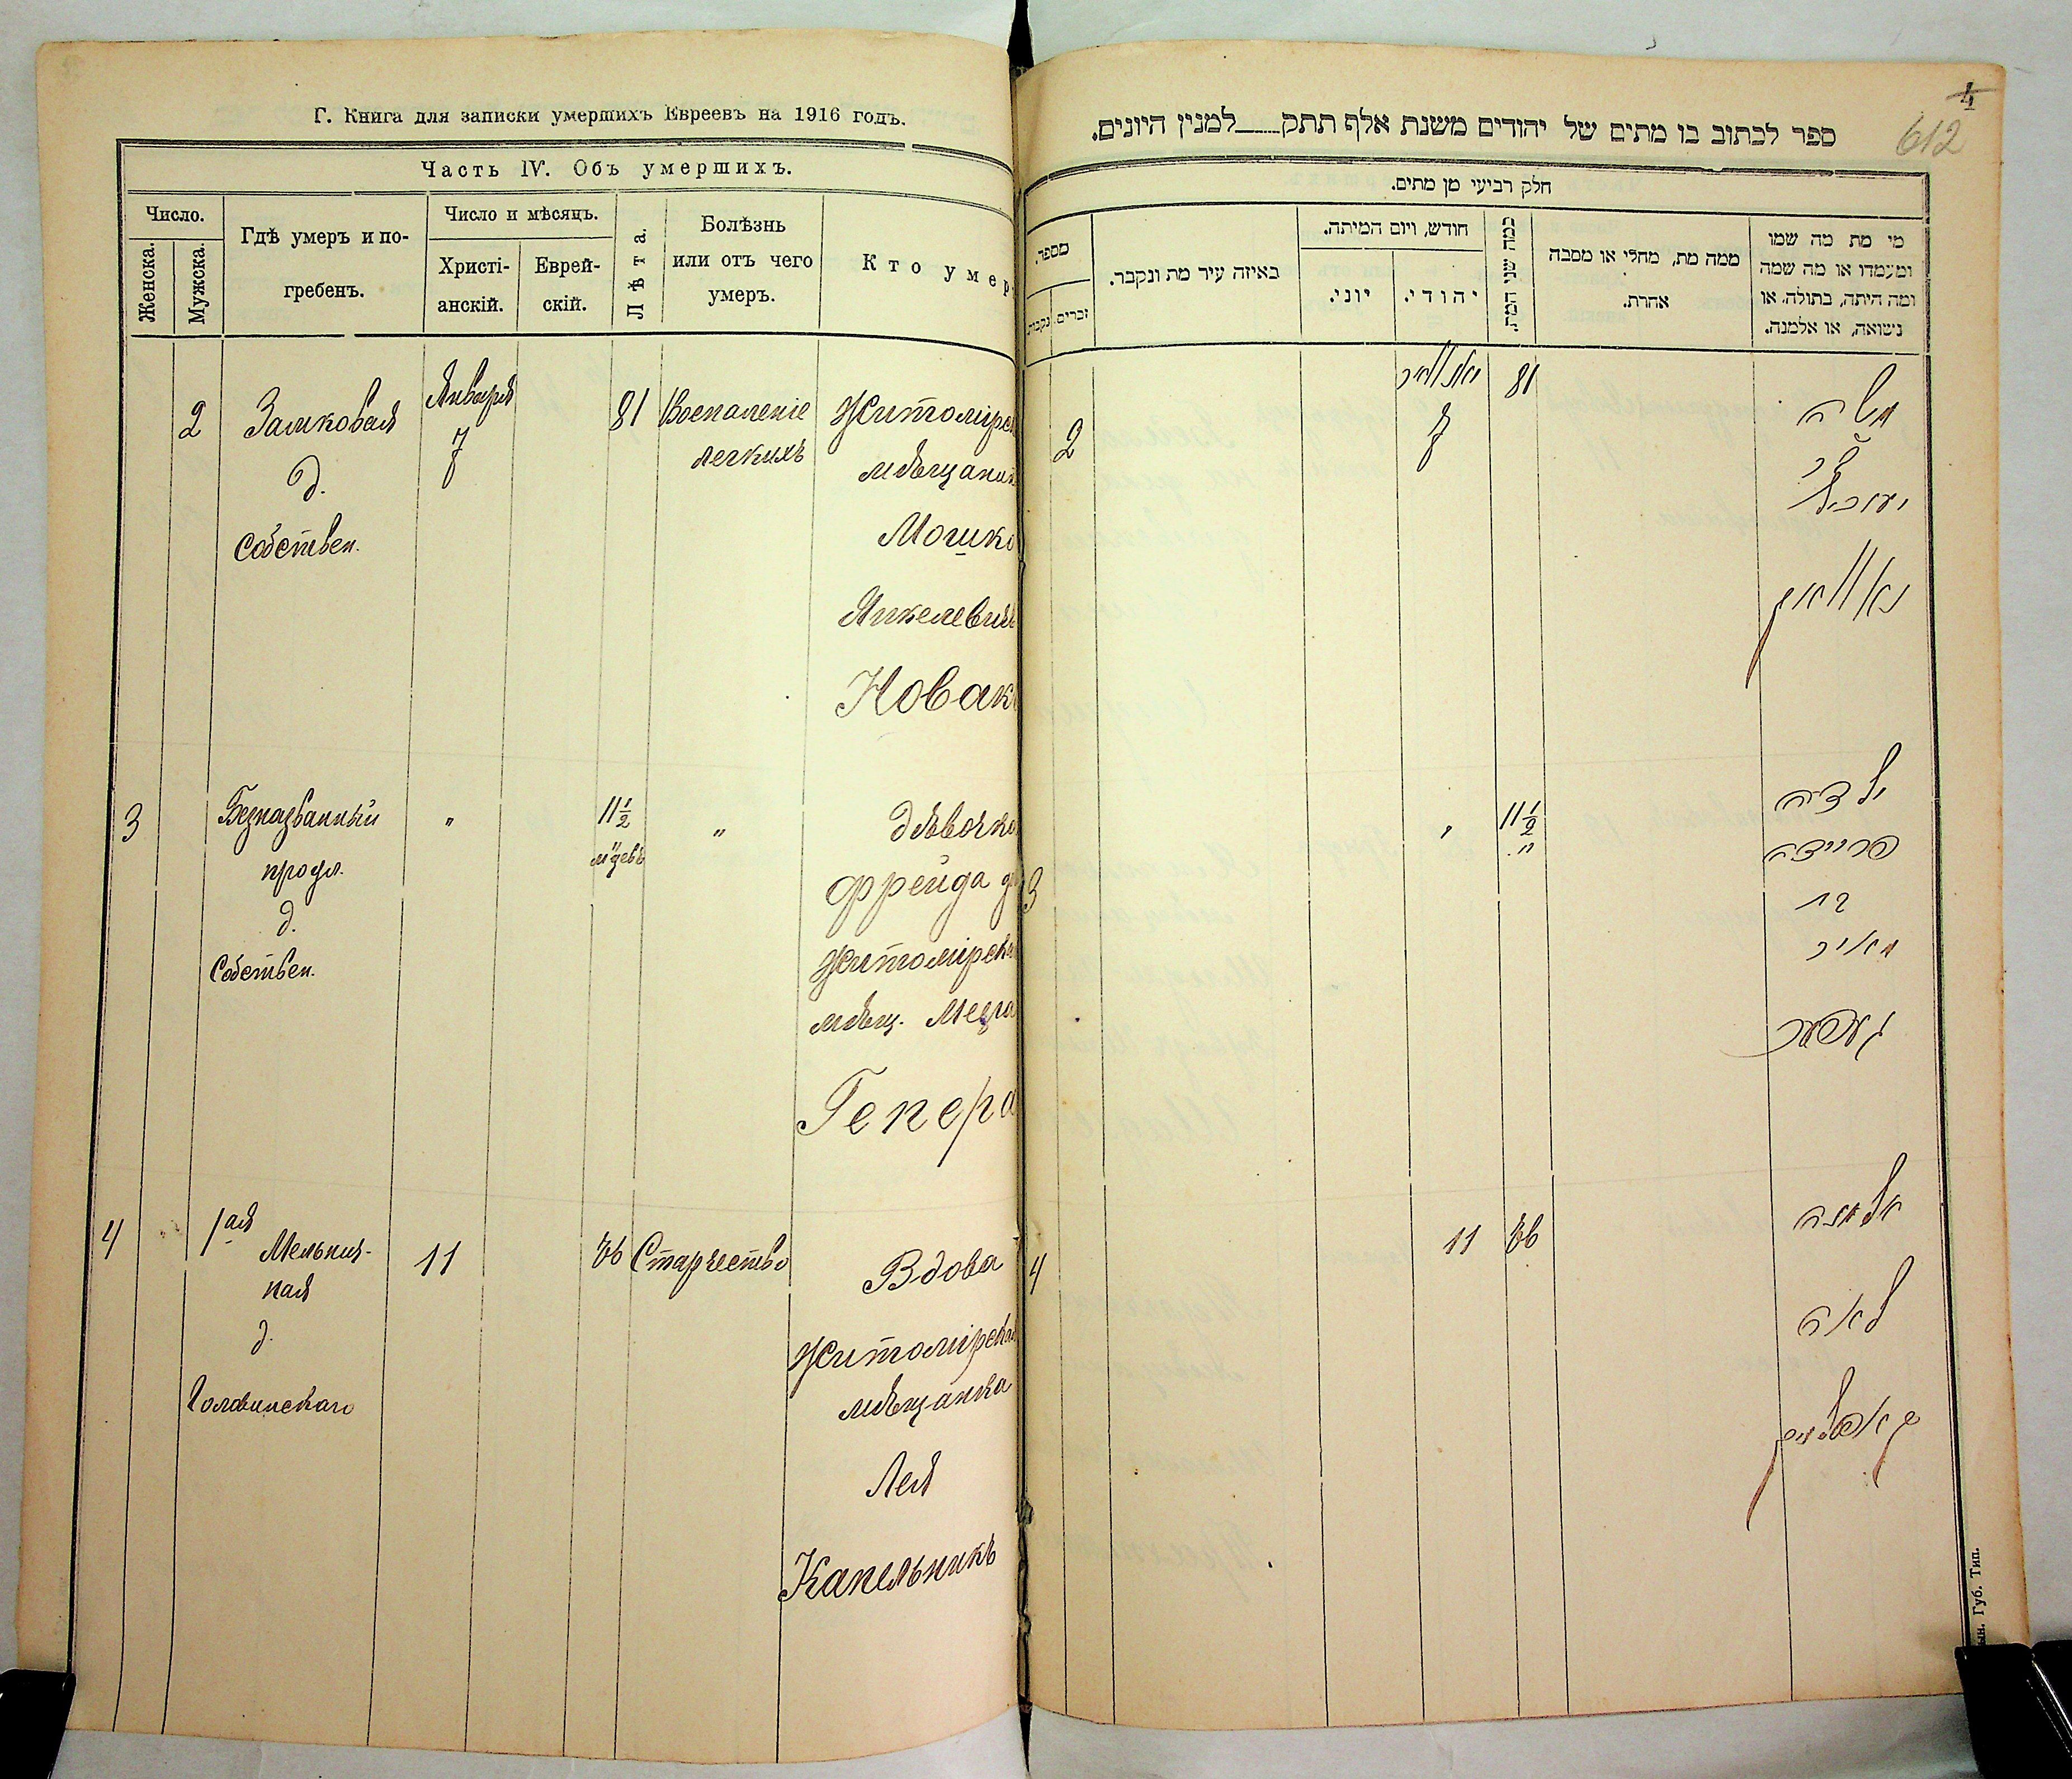 Г. Книга для записки умершихъ Евреевъ на 1916 годъ.
Часть IV. Объ умершихъ.
Число.
Женска.
Мужска.
Гдѣ умеръ и по-
гребенъ.
Число и мѣсяцъ.
Христі-
анскій.
Еврей-
скій.
Лѣта.
Болѣзнь
или отъ чего
умеръ.
Кто умер
2
Замковая
д.
Собствен.
Января
7
81
Воспаленіе
легкихъ
Житомірск
мѣщанин
Мошко
Янкелевичъ
Новакъ
3
Безназванный
д.
Собствен.
"
11½
"
дѣвочка
Фрейда
Житомірск
мѣщ.
Гепера
4
1ая
Мельнич-
ная
д.
Головинскаго
11
76
Старчество
Вдова
Житомірская
мѣщанка
Лея
Капельникъ
4
612
ספר לכתוב בו מתים של יהודים משנת אלף תתק___למנין היונים.
חלק רביעי מן מתים.
מספר.
נקבות
זכרים
באיזה עיר מת ונקבר.
חודש, ויום המיתה.
יוני.
יהודי.
כמה שני המת.
ממה מת, מחלי או מסבה
אחרת.
מי מת מה שמו
ומעמדו או מה שמה
ומה היתה, בתולה, או
נשואה, או אלמנה.
2
יאנואר
7
81
משה
נאוואק
3
"
11½
ילדה
פריידה
בת
מאיר
געפער
4
11
76
אלמנה
לאה
קאפעלניק
ын. Губ. Тип.